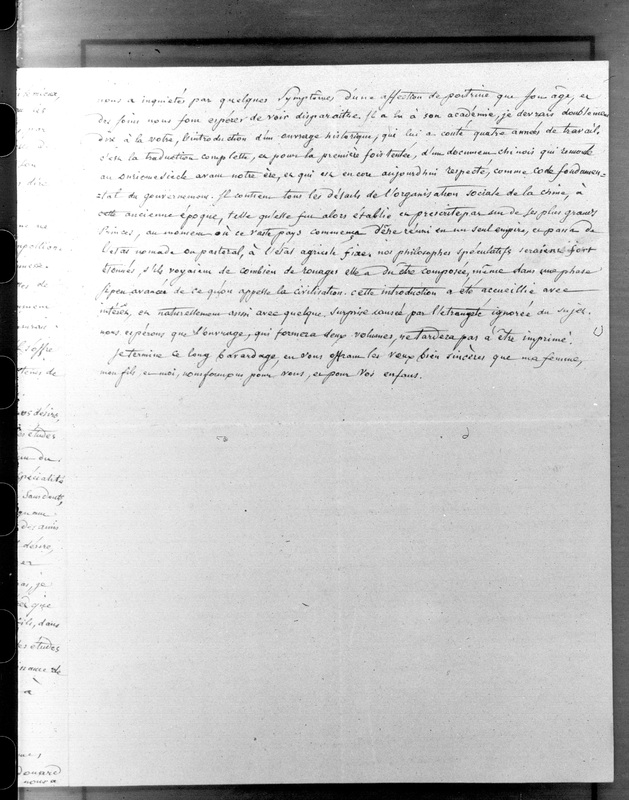 nous a inquiétés par quelques symptômes d'une affection de poitrine que son âge, et
des soins nous font espérer de voir disparaître. Il a lu à son académie, je devrais doublement
dire à la votre, l'introduction d'un ouvrage historique, qui lui a couté quatre années de travail.
c'est la traduction complette, et pour la première fois tentée, d'un document chinois qui remonte
au onzieme siècle avant notre ère, et qui est encore aujourd'hui respecté, comme code fondamen=
=tal du gouvernement. Il contient tous les détails de l'organisation sociale de la chine, à
cette ancienne époque, telle qu'elle fut alors établie et prescrite par un de ses plus grands
Princes, au moment où ce vaste pays commença d'être réuni en un seul empire, et passa de
l'état nomade ou pastoral, à l'état agricole fixe. nos philosophes spéculatifs seraient fort
étonnés, s'ils voyaient de combien de rouages elle a du être composée, même dans une phase
si peu avancée de ce qu'on appelle la civilisation. cette introduction a été accueillie avec
intérêt, et naturellement aussi avec quelque surprise causée par l'étrangeté ignorée du sujet.
nous espérons que l'ouvrage, qui formera deux volumes, ne tardera pas à être imprimé.
Je termine ce long bavardage, en vous offrant les vœux bien sincères que ma femme,
mon fils et moi, nous formons pour vous, et pour vos enfans.
dire
l'offre
désire,
études
Spécialité
Sans doute,
des amis
désire,
pas, je
que
fils, dans
les études
à
nous a